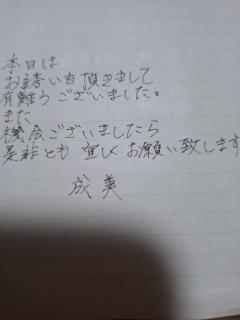 本日は
お誘いを頂きまして
有難うございました。
また
機会ございましたら
是非とも宜しくお願い致します
成美